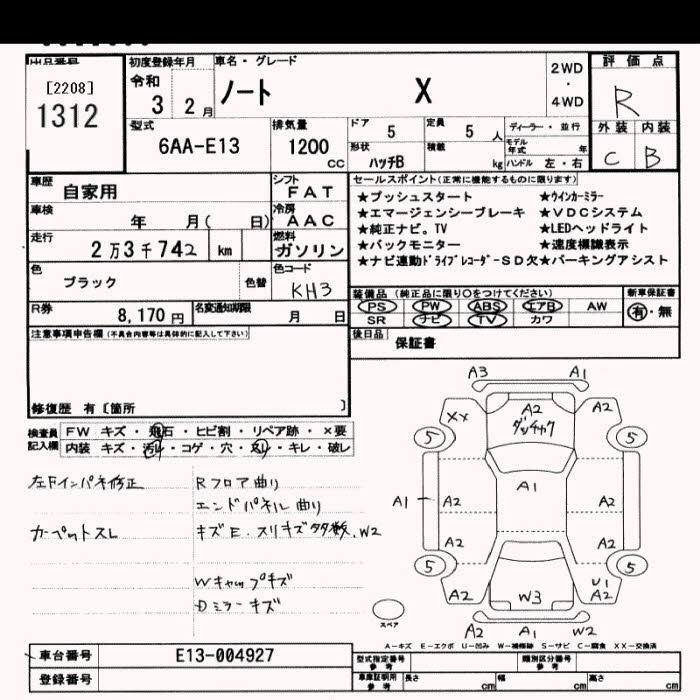 出品番号
[2208]
1312
初度登録年月
令和
3 2月
車名・グレード
ノート X
2WD
・
4WD
評価点
R
外装 内装
C B
型式
6AA-E13
排気量
1200
cc
ドア 5
定員 5 人
形状 ハッチB
積載 kg
ディーラー・並行
モデル年式 年
ハンドル 左・右
車歴 自家用
車検 年 月( 日)
走行 2万3千742 km
色 ブラック
色替
シフト FAT
冷房 AAC
燃料 ガソリン
色コード KH3
R券 8,170円
名変通知期限 月 日
セールスポイント(正常に機能するものに限ります)
★プッシュスタート ★ウインカーミラー
★エマージェンシーブレーキ ★VDCシステム
★純正ナビ。TV ★LEDヘッドライト
★バックモニター ★速度標識表示
★ナビ連動ドライブレコーダーSD欠★パーキングアシスト
装備品 (純正品に限り○をつけてください)
新車保証書
PS PW ABS エアB AW
SR ナビ TV カワ
有・無
後日品 保証書
注意事項申告欄(不具合内容等は具体的に記入して下さい)
修復歴 有〔箇所 〕
検査員記入欄
FW キズ・飛石・ヒビ割・リペア跡・×要
内装 キズ・汚れ・コゲ・穴・スリ・キレ・破レ
左Fインパネ修正 Rフロア曲り
エンドパネル曲り
カーペットスレ キズE.スリキズ多数.W2
Wキャップキズ
Dミラーキズ
A3 A1
XX A2 A2
ダッチャク
5 5
A1
A1 A2 A2
A2 A2
5 5
A2 W3 U1
A2
スペア
A2 A1 W2
A-キズ E-エクボ U-凹み W-補修跡 S-サビ C-腐食 XX-交換済
車台番号 E13-004927
登録番号
型式指定番号 参考
類別区分番号 参考
車庫証明用 参考
長さ cm 幅 cm 高さ cm